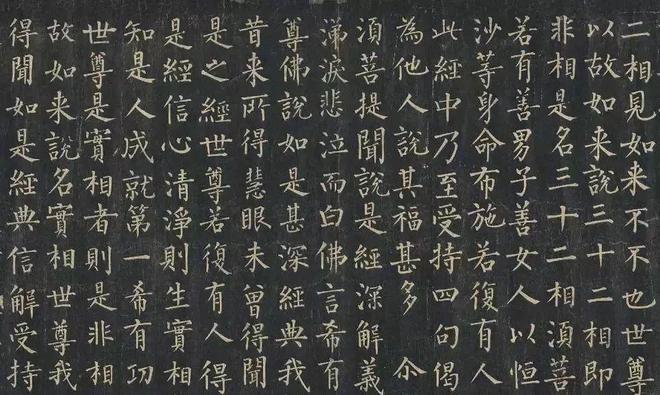 二相見如来不不也世尊
以故如来說三十二相即
非相是名三十二相湏菩
若有善男子善女人以恒
沙等身命布施若復有人
此經中乃至受持四句偈
為他人說其福甚多 尒
湏菩提聞說是經深解義
涕淚悲泣而白佛言希有
尊佛說如是甚深經典我
昔来所得慧眼未曾得聞
是之經世尊若復有人得
是經信心清淨則生實相
知是人成就第一希有功
世尊是實相者則是非相
故如来說名實相世尊我
得聞如是經典信解受持